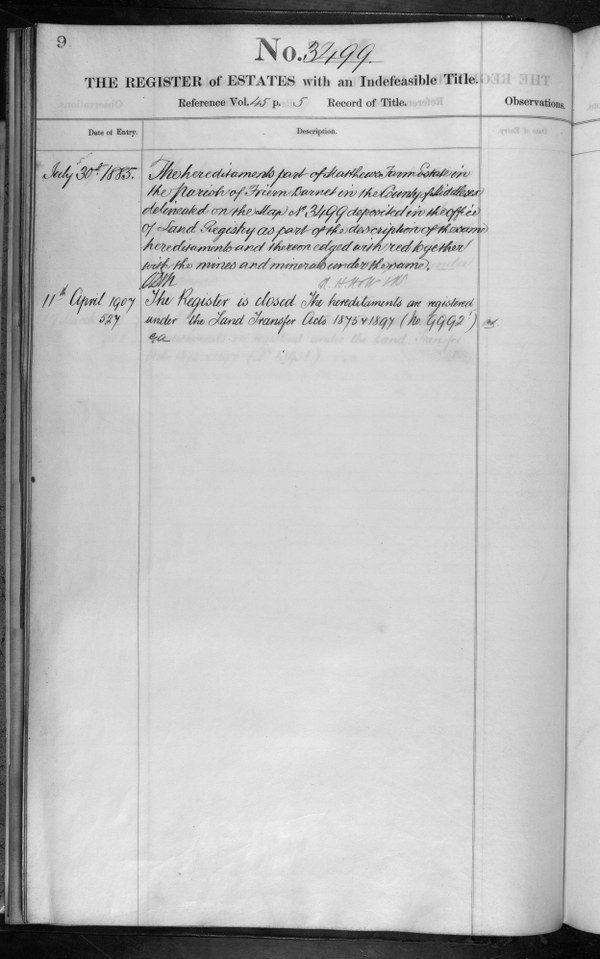 9
No. 3499.
THE REGISTER of ESTATES with an Indefeasible Title.
Reference Vol. 45 p. 5 Record of Title.
Observations.
Date of Entry.
Description.
July 30th 1885.
The hereditaments part of Matthews Farm Estate in
the Parish of Friern Barnet in the County of Middlesex
delineated on the Map No 3499 deposited in the office
of Land Registry as part of the description of the same
hereditaments and thereon edged with red together
with the mines and minerals under the same.
11th April 1907
527
The Register is closed The hereditaments are registered
under the Land Transfer Acts 1875 & 1897 (No. 9992)